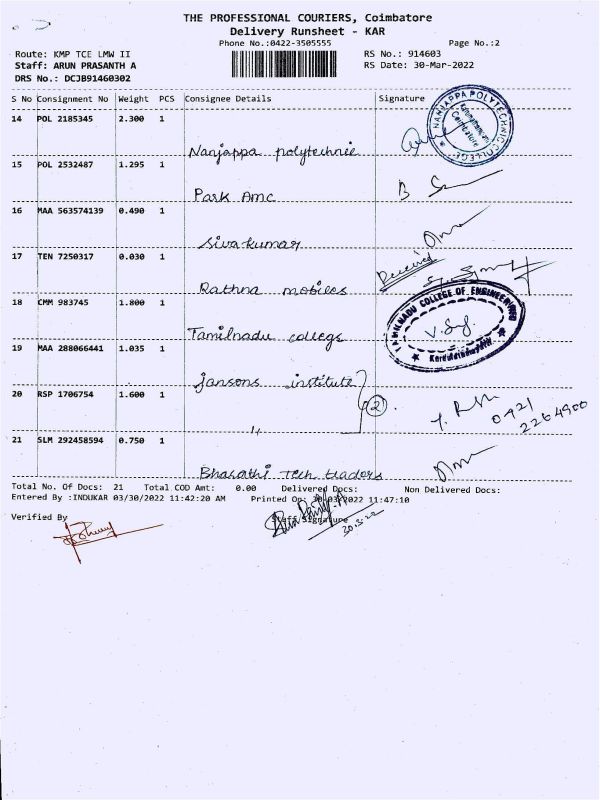 THE PROFESSIONAL COURIERS, Coimbatore
Delivery Runsheet - KAR
Phone No.:0422-3505555 Page No.:2
Route: KMP TCE LMW II RS No.: 914603
Staff: ARUN PRASANTH A RS Date: 30-Mar-2022
DRS No.: DCJB91460302
S No Consignment No Weight PCS Consignee Details Signature
14 POL 2185345 2.300 1
Nanjappa polytechnic
NANJAPPA POLYTECHNIC COLLEGE
Coimbatore
15 POL 2532487 1.295 1
Park Amc
16 MAA 563574139 0.490 1
Sivakumar
17 TEN 7250317 0.030 1
Received
Rathna mobiles
18 CMM 983745 1.800 1
Tamilnadu college
TAMILNADU COLLEGE OF ENGINEERING
19 MAA 288066441 1.035 1
Jansons institute
20 RSP 1706754 1.600 1
(2)
0421
2264900
"
21 SLM 292458594 0.750 1
Bharathi Tech traders
Total No. Of Docs: 21 Total COD Amt: 0.00 Delivered Docs: Non Delivered Docs:
Entered By :INDUKAR 03/30/2022 11:42:20 AM Printed On: 30/03/2022 11:47:10
Verified By Staff Signature
30.3.22